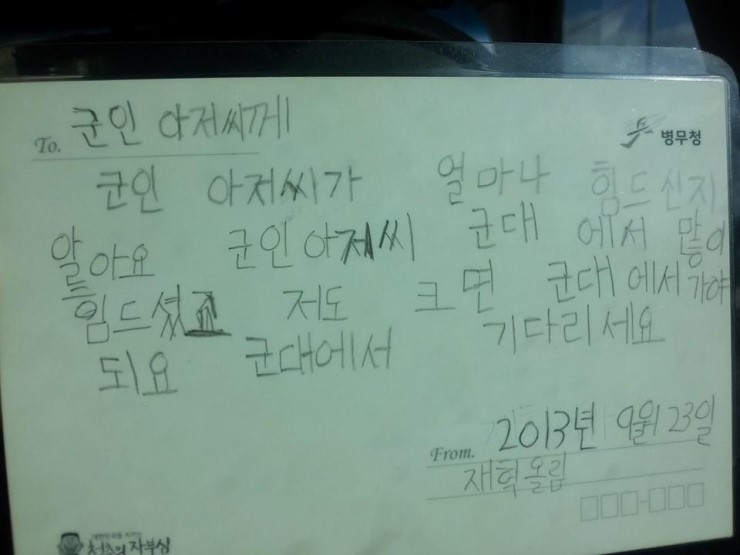 To. 군인 아저씨께
병무청
군인 아저씨가 얼마나 힘드신지
알아요 군인 아저씨 군대 에서 많이
힘드셨죠 저도 크면 군대에서 가야
되요 군대에서 기다리세요
2013년 9월 23일
From. 재혁올림
대한민국을 지키는
청춘의 자부심